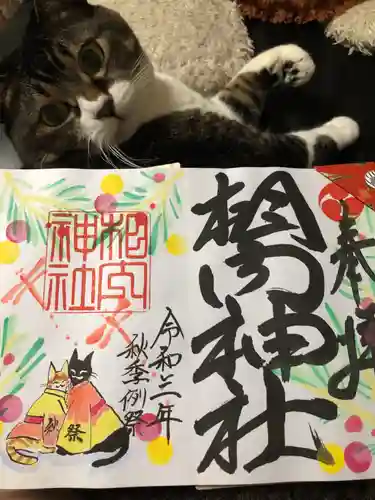 奉拝
相内神社
令和三年
秋季例祭
相内
神社
秋
祭